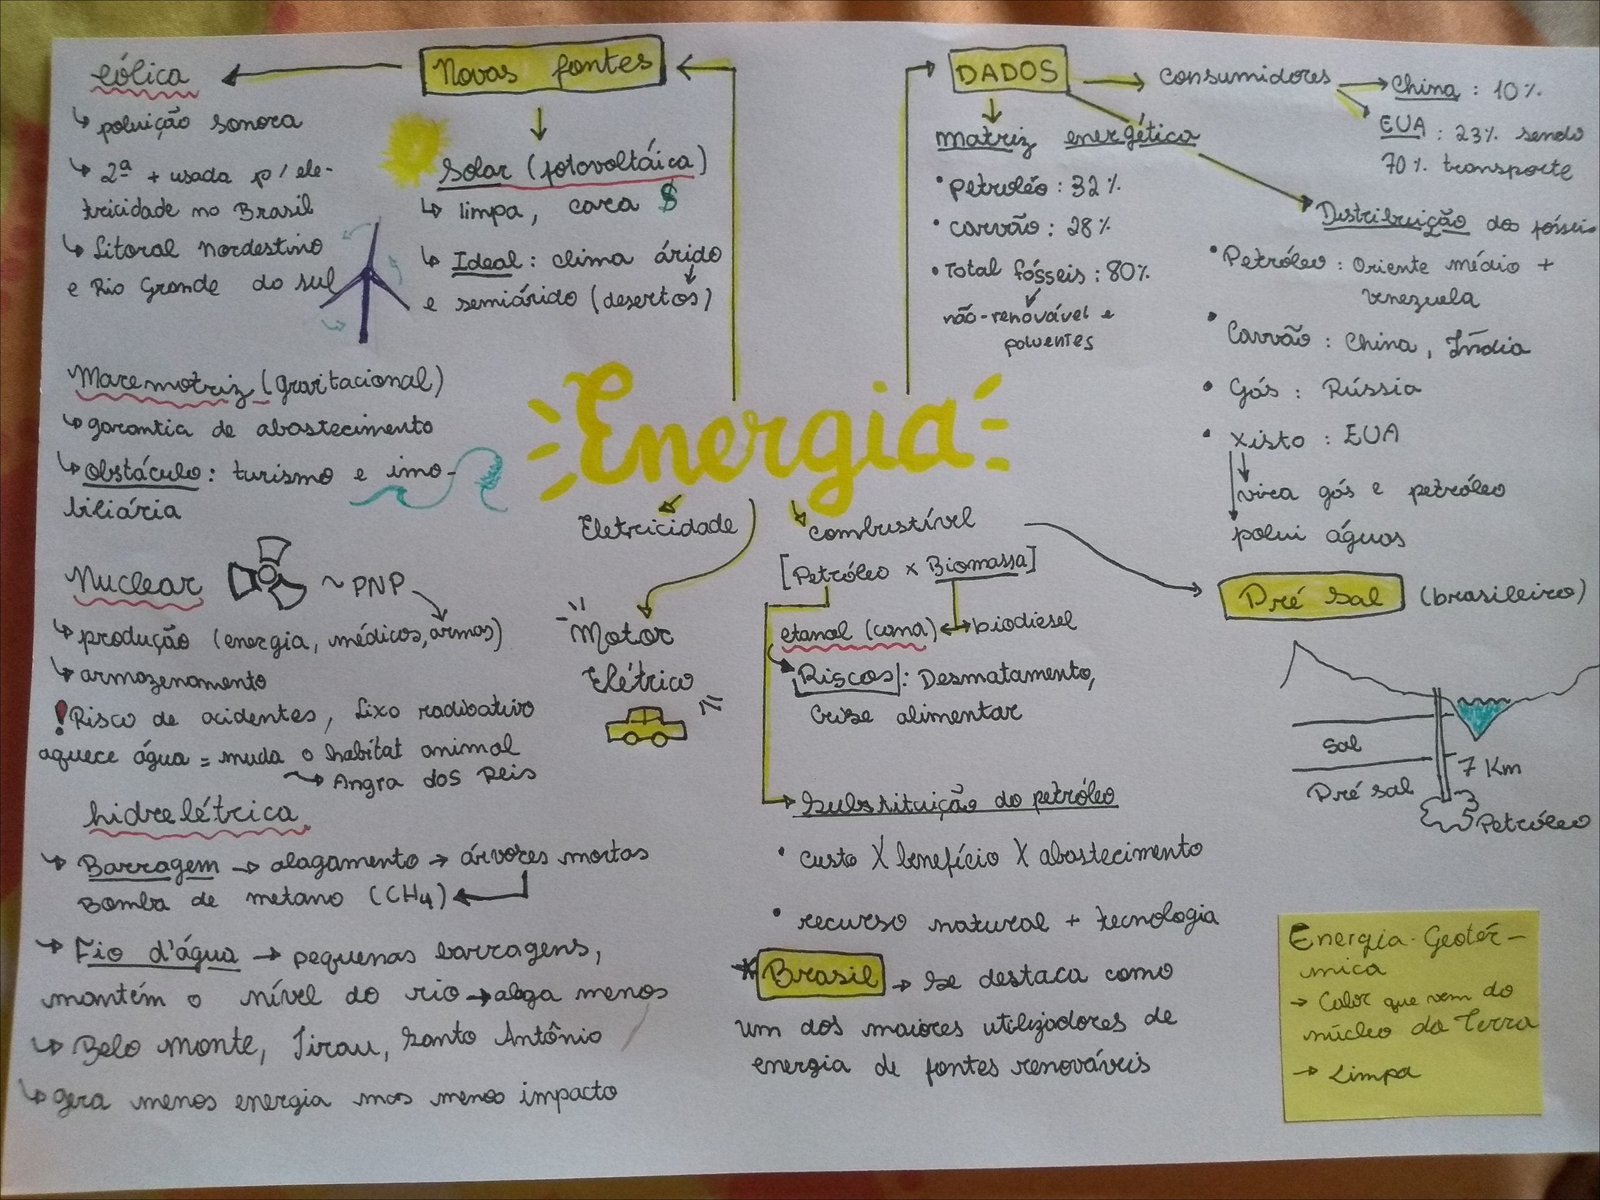 Novas fontes
eólica
↳ poluição sonora
↳ 2ª + usada p/ ele-
tricidade no Brasil
↳ Litoral Nordestino
e Rio Grande do sul
Solar (fotovoltáica)
↳ limpa, cara $
↳ Ideal: clima árido
e semiárido (desertos)
Maremotriz (gravitacional)
↳ garantia de abastecimento
↳ obstáculo: turismo e imo-
biliária
Nuclear ~ PNP
↳ produção (energia, médicos, armas)
↳ armazenamento
! Risco de acidentes, Lixo radioativo
aquece água = muda o habitat animal
→ Angra dos Reis
hidrelétrica
↳ Barragem → alagamento → árvores mortas
Bomba de metano (CH4)
↳ Fio d'água → pequenas barragens,
mantém o nível do rio → alaga menos
↳ Belo Monte, Jirau, Santo Antônio
↳ gera menos energia mas menos impacto
Energia
Eletricidade
Motor
Elétrico
DADOS → consumidores
China: 10%
EUA: 23% sendo
70% transporte
Matriz energética
• Petroléo: 32%
• carvão: 28%
• Total fósseis: 80%
não-renovável e
poluentes
Distribuição dos fósseis
• Petróleo: Oriente médio +
Venezuela
• Carvão: China, Índia
• Gás: Rússia
• Xisto: EUA
vira gás e petróleo
polui águas
combustível
[Petróleo x Biomassa]
etanol (cana) ↔ biodiesel
Riscos: Desmatamento,
Crise alimentar
Substituição do petróleo
• custo X benefício X abastecimento
• recurso natural + tecnologia
* Brasil → Se destaca como
um dos maiores utilizadores de
energia de fontes renováveis
Pré Sal (brasileiro)
Sal
Pré sal
7 Km
Petróleo
Energia Geotér-
mica
→ Calor que vem do
núcleo da Terra
→ Limpa